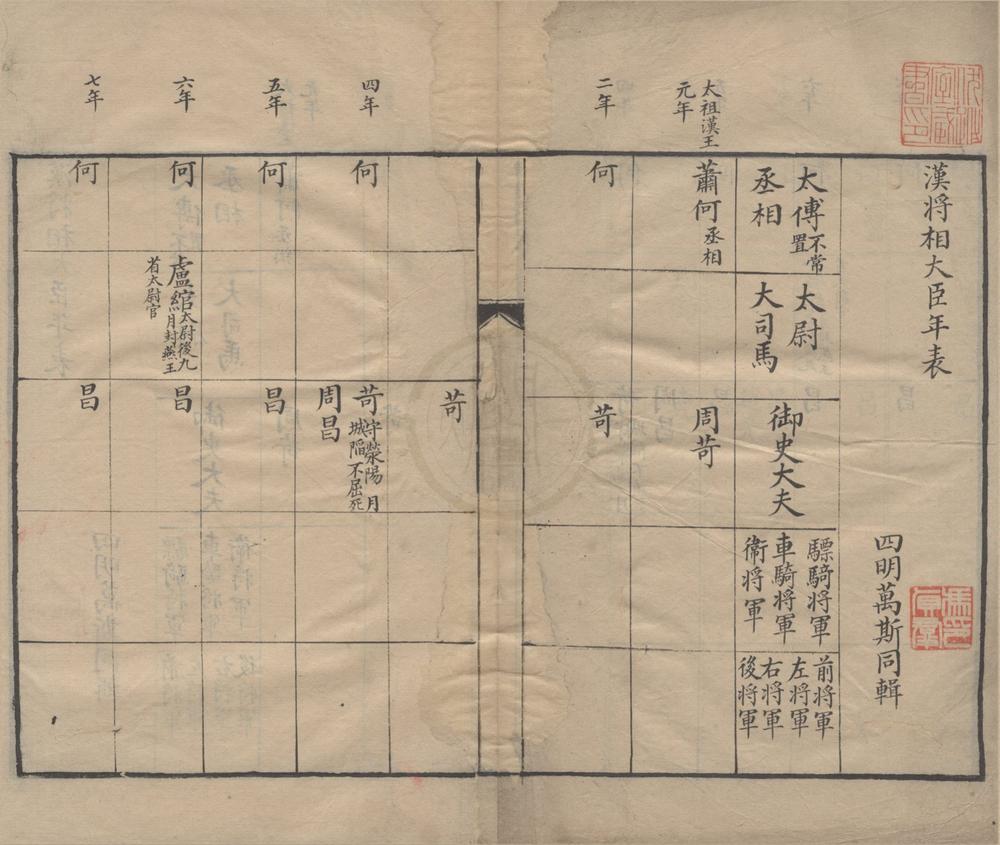 漢将相大臣年表
四明萬斯同輯
太傅不常置
丞相
太尉
大司馬
御史大夫
驃騎将軍
車騎将軍
衛将軍
前将軍
左将軍
右将軍
後将軍
太祖漢王
元年
蕭何丞相
周苛
二年
何
苛
苛
四年
何
苛守滎陽月
城陷不屈死
周昌
五年
何
昌
六年
何
盧綰太尉後九
月封燕王
省太尉官
昌
七年
何
昌